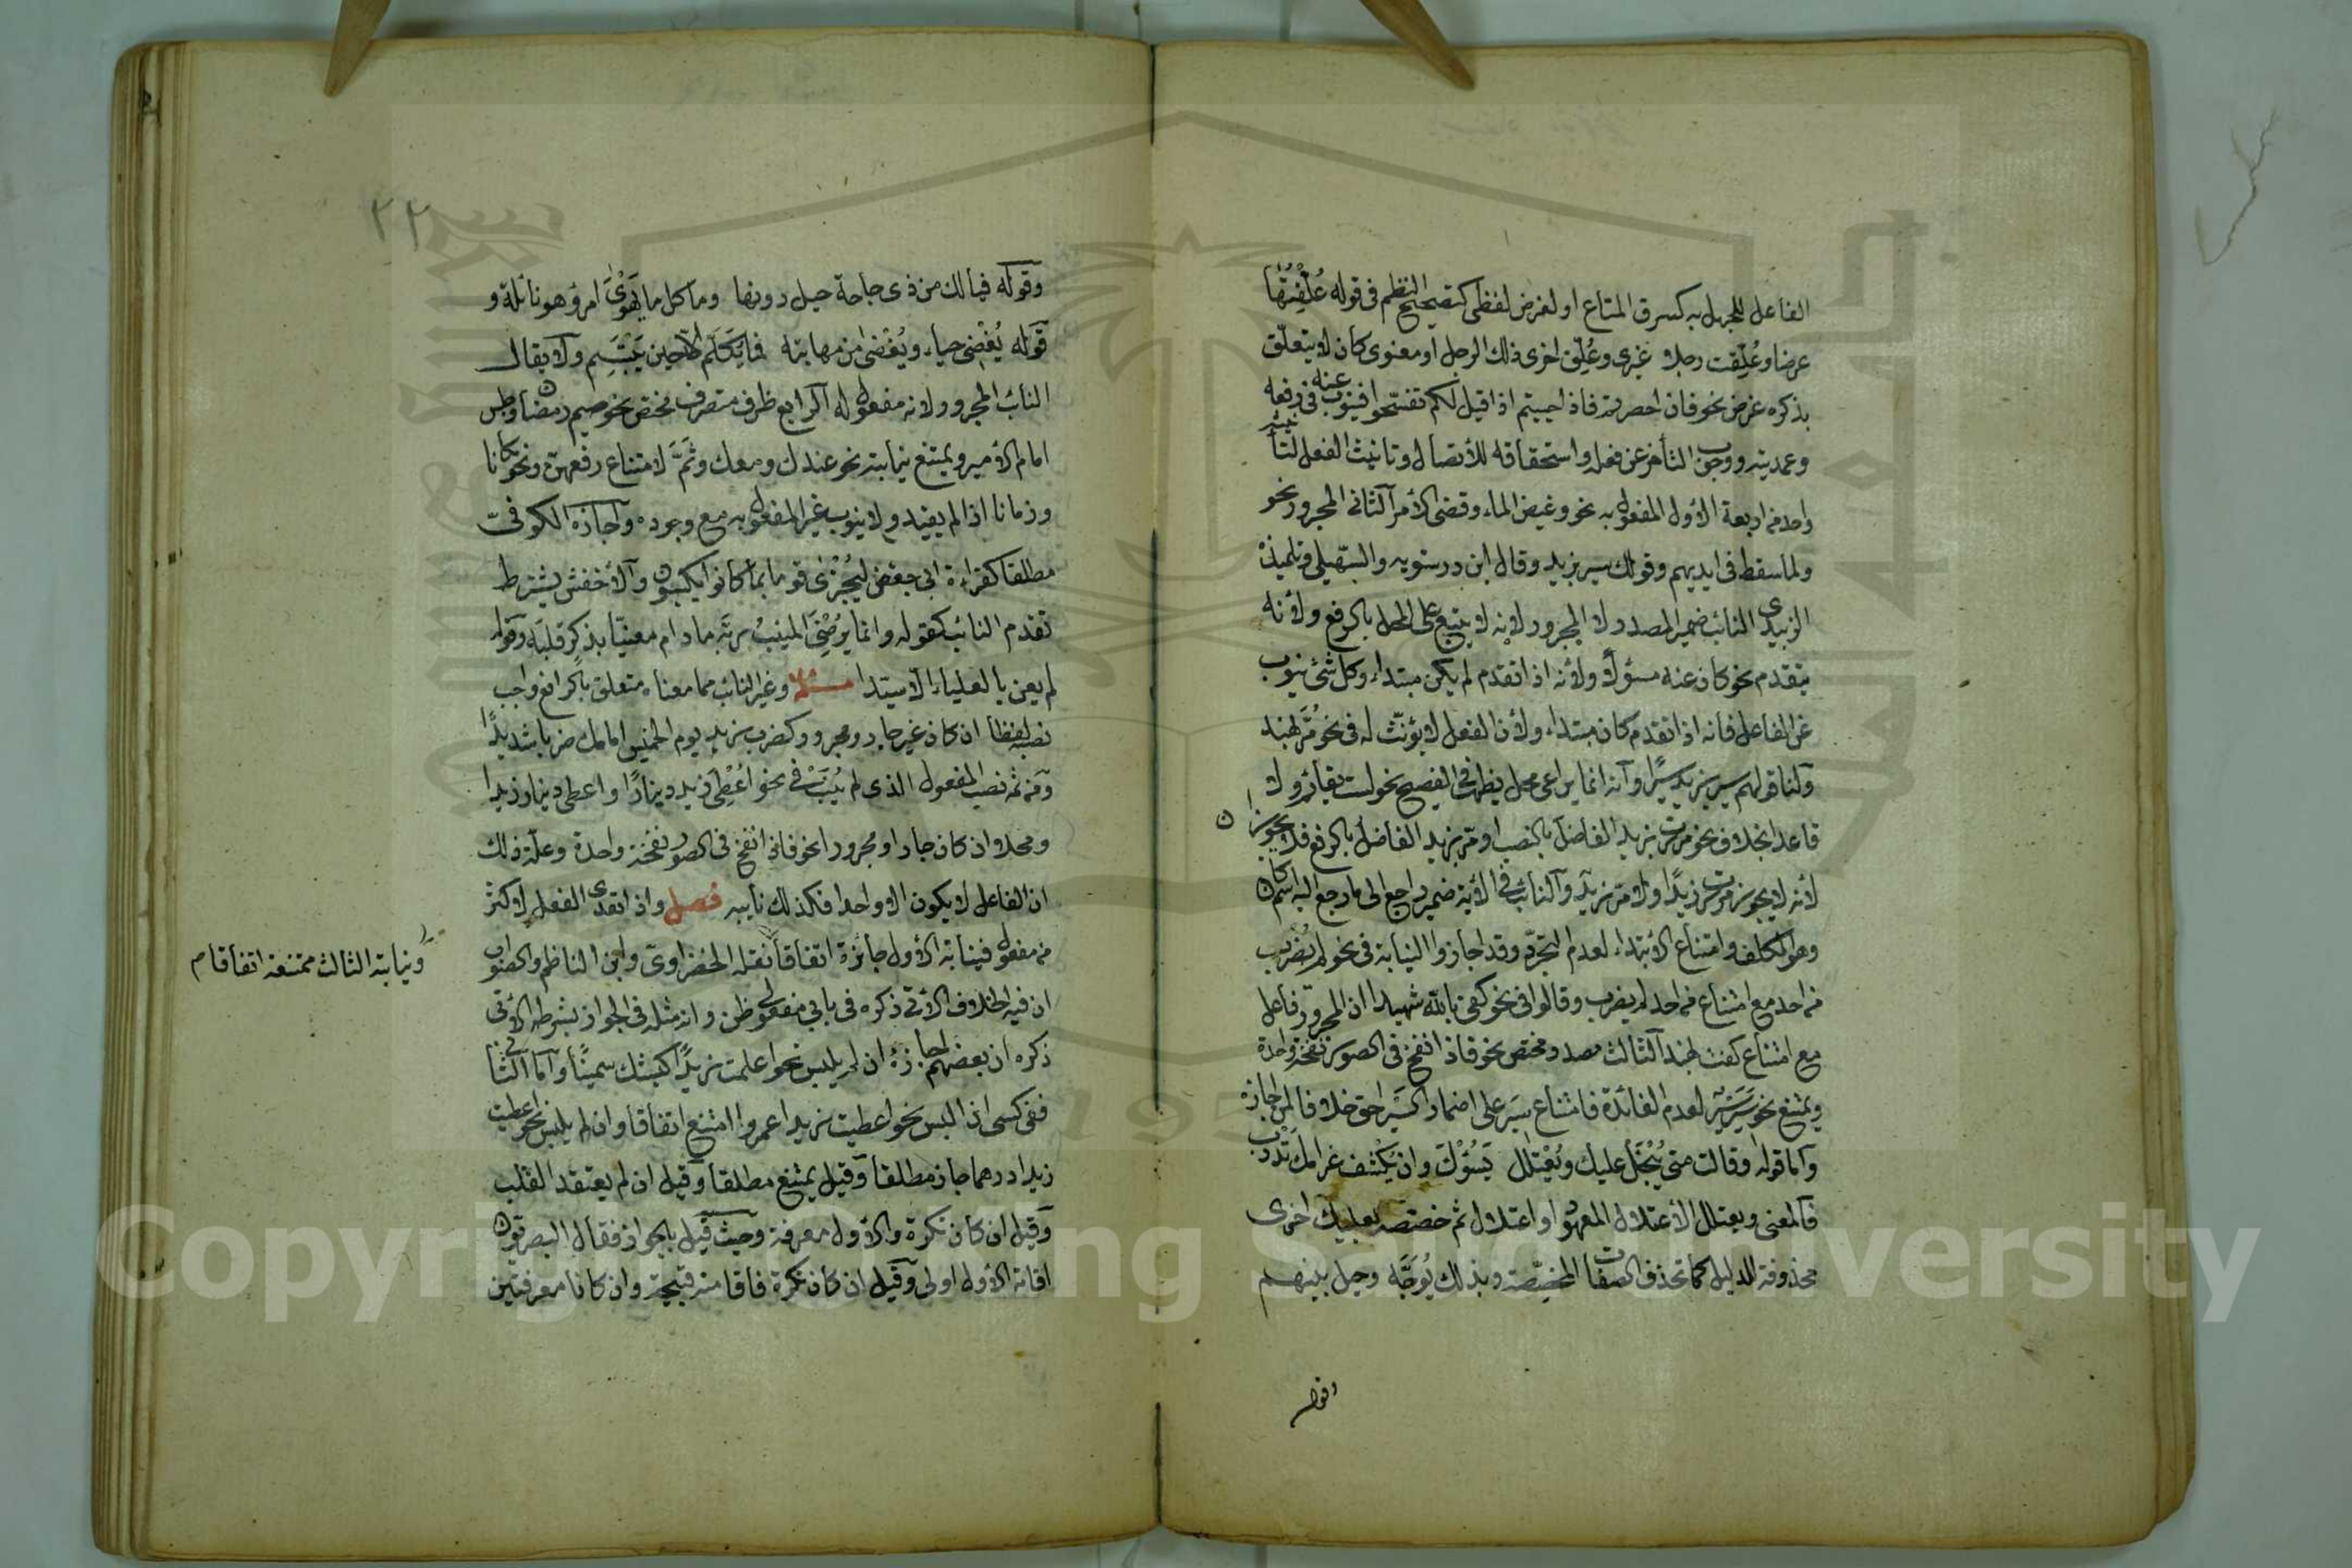 الفاعل للجهل به كسرق المتاع او لغرض لفظى كتصحيح النظم فى قوله عُلِّقتُها
عرضا وعُلِّقت رجلا غيرى وعُلِّق اخرى ذلك الرجل او معنوى كأن لا يتعلّق
بذكره غرض نحو فان احصرتم فاذا حييتم اذا قيل لكم تفسّحوا فينوب عنه فى رفعه
وعمديته ووجوب التأخر عن فعله واستحقاقه للأتصال وتانيث الفعل لتأنيثه
واحد من اربعة الأول المفعول به نحو وغيض الماء وقضى الأمر الثانى المجرور نحو
ولما سقط فى ايديهم وقولك سير بزيد وقال ابن درستويه والسّهيلى وتلميذه
الرندى النائب ضمير المصدر لا المجرور لانه لا يتبع على المحل بالرفع ولأنه
يتقدم نحو كان عنه مسئولا ولأنه اذا تقدم لم يكن مبتداء وكل شئ ينوب
عن الفاعل فانه اذا تقدم كان مبتداء ولأن الفعل لا يؤنّث له فى نحو مُرَّ بهند
ولنا قولهم سير بزيد سيرًا وانه انما يراعى محل يظهر فى الفصيح نحو لست بقائم ولا
قاعدا بخلاف نحو مررت بزيد الفاضلَ بالنصب او مرّ بزيد الفاضلُ بالرفع فلا يجوزان
لأنه لا يجوز مررت زيدًا ولا مرّ زيد والنائب فى الآية ضمير راجع الى ما رجع اليه اسم كان
وهو المكلف وامتناع الأبتداء لعدم التجرّد وقد اجازوا النيابة فى نحو لم يُضْرَب
من احد مع امتناع من احد لم يضرب وقالوا فى نحو كفى بالله شهيدا ان المجرور فاعل
مع امتناع كفت بهند الثالث مصدر مختص نحو فاذا نفخ فى الصور نفخة واحدة
ويمتنع نحو سِيرَ سَيْرٌ لعدم الفائدة فامتناع سِيرَ على اضمار السَّير احق خلافا لمن اجازه
وأما قوله وقالت متى يُبْخَلْ عليك ويُعْتَلَل يَسُؤْكَ وان يُكْشَف غرامك تَدْرَب
فالمعنى ويعتلل الأعتلال المعهود او اعتلال ثم خصّصه بعليك اخرى
محذوفة للدليل كما تحذف الصفات المخصّصة وبذلك يُوجَّه وحيل بينهم
وقوله
٢٢
وقوله فيالك من ذى حاجة حيل دونها وما كل ما يَهْوَى امرؤ هو نائله و
قوله يُغْضِى حياء ويُغْضَى من مهابته فما يُكَلَّم الّا حين يَبْتَسِم ولا يقال
النائب المجرور لانه مفعول له الرابع ظرف متصرف مختص نحو صيم رمضان وجلس
امام الأمير ويمتنع نيابته نحو عندك ومعك وثَمَّ لامتناع رفعهنّ ونحو مكانا
وزمانا اذا لم يقيد ولا ينوب غير المفعول به مع وجوده واجازه الكوفىّ
مطلقا كقراءة ابى جعفر ليُجْزَى قوما بما كانوا يكسبون والأخفش بشرط
تقدم النائب كقوله وانما يُرْضِى المنيبُ ربَّه ما دام معنيّا بذكرٍ قلبَه وقوله
لم يعن بالعلياء الّا سيّدا مسئلة وغير النائب مما معناه متعلق بالرافع واجب
نصبه لفظا ان كان غير جار ومجرور كضرب زيد يوم الخميس امامك ضربا شديدًا
ومن ثمه نصب المفعول الذى لم يُنَبْ فى نحو اُعْطِىَ زيد دينارًا واعطى دينار زيدا
ومحلا ان كان جارا ومجرورا نحو فاذا نُفخ فى الصور نفخة واحدة وعلّة ذلك
ان الفاعل لا يكون الا واحدا فكذلك نايبه فصل واذا تعدى الفعل لاكثر
من مفعول فنيابة الأول جائزة اتفاقا نقله الخضراوىّ وابن الناظم والصواب
ونيابة الثالث ممتنعة اتفاقا م
ان فيه الخلاف الآتى ذكره فى بابى مفعولى ظن وانه مثله فى الجواز بشرطه الأتى
ذكره ان بعضهم اجازه ان لم يلبس نحو اعلمت زيدًا كبشك سمينًا وأما الثانى
ففى كسى ان البس نحو اعطيت زيدا عمروا امتنع اتفاقا وان لم يلبس نحو اعطيت
زيدا درهما جاز مطلقا وقيل يمتنع مطلقا وقيل ان لم يعتقد القلب
وقيل ان كان نكرة والأول معرفة وحيث قيل بالجواز فقال البصريّون
اقامة الأول اولى وقيل ان كان نكرة فاقامته قبيحة وان كانا معرفتين
Copyright © King Saud University